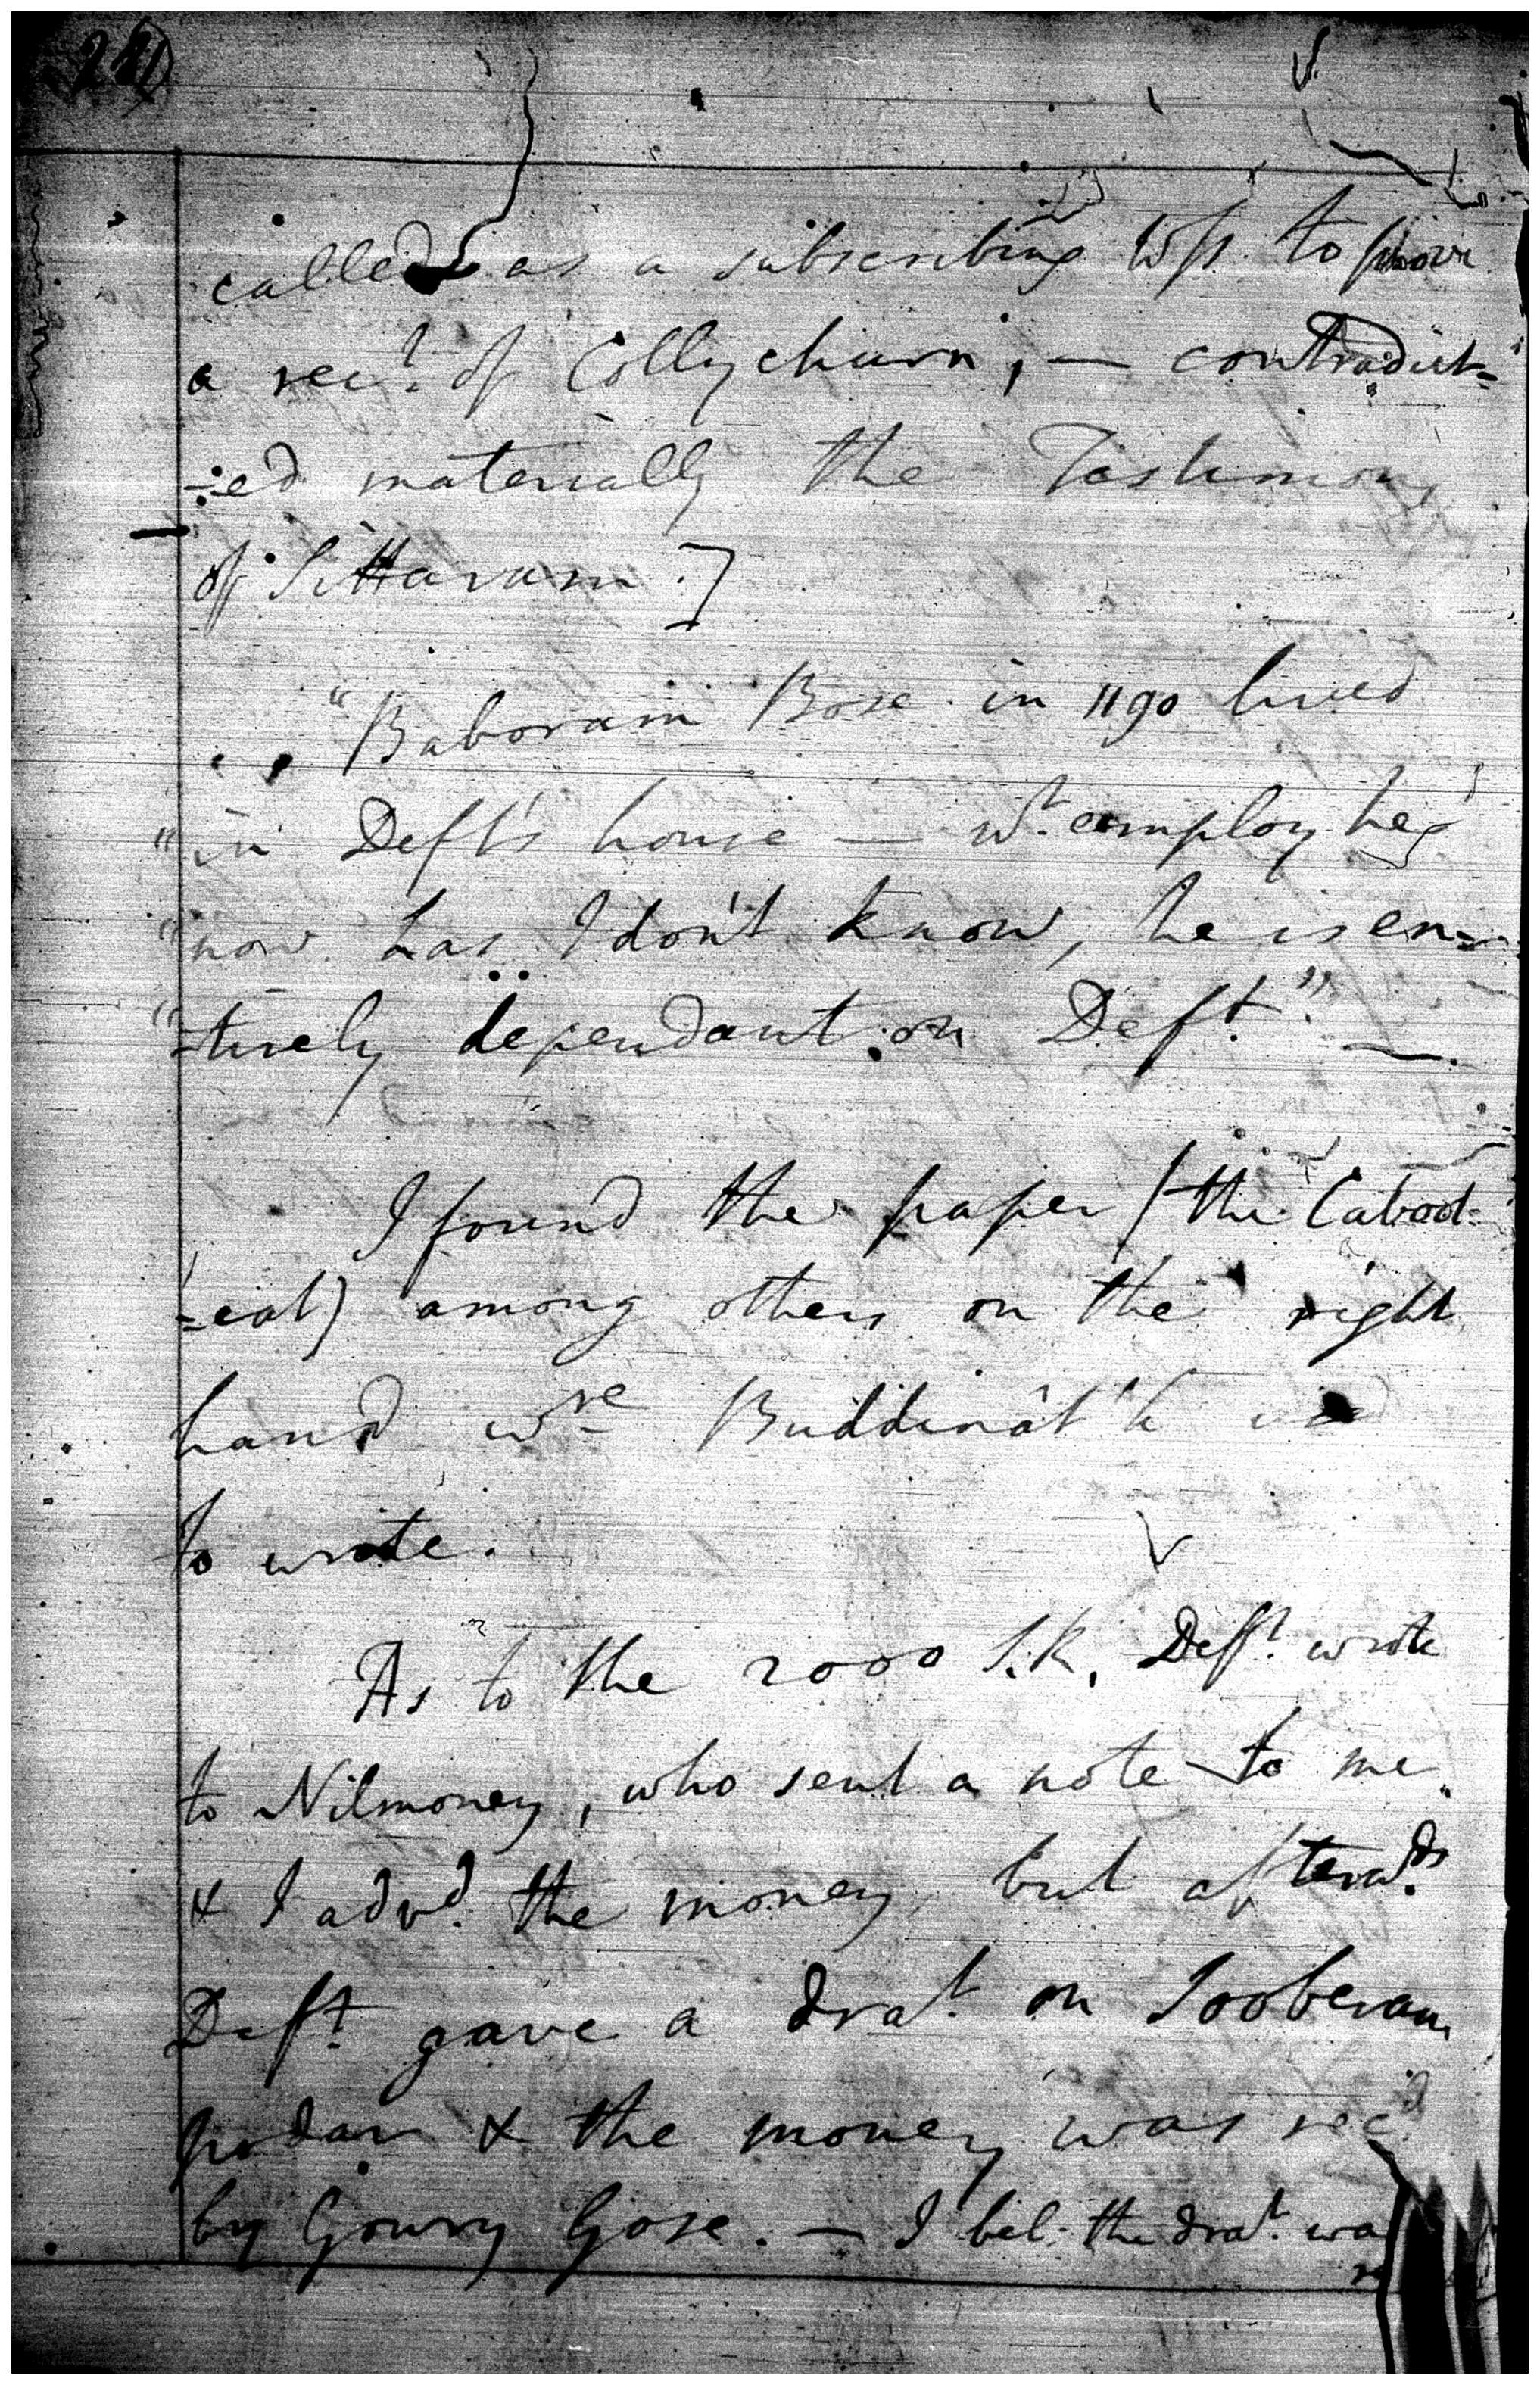 called as a subscribing Wss. to prove
a rect. of Collychurn, — contradict=
=ed materially the Testimony
of Sittaram.]
"Baboram Bose in 1190 lived
"in Deft's house — wt. employ he
"now has I don't know, he is en=
"=tirely dependant on Deft." —
I found the paper (the Cabool=
=eat) among others on the right
hand wre Buddinat'h used
to write.
As to the 2000 S.R. Deft. wrote
to Nilmoney, who sent a note to me
& I advd. the money, but afterwds.
Deft. gave a drat. on Sooberam
podar & the money was recd.
by Gowry Gose. — I bel. the drat. wa